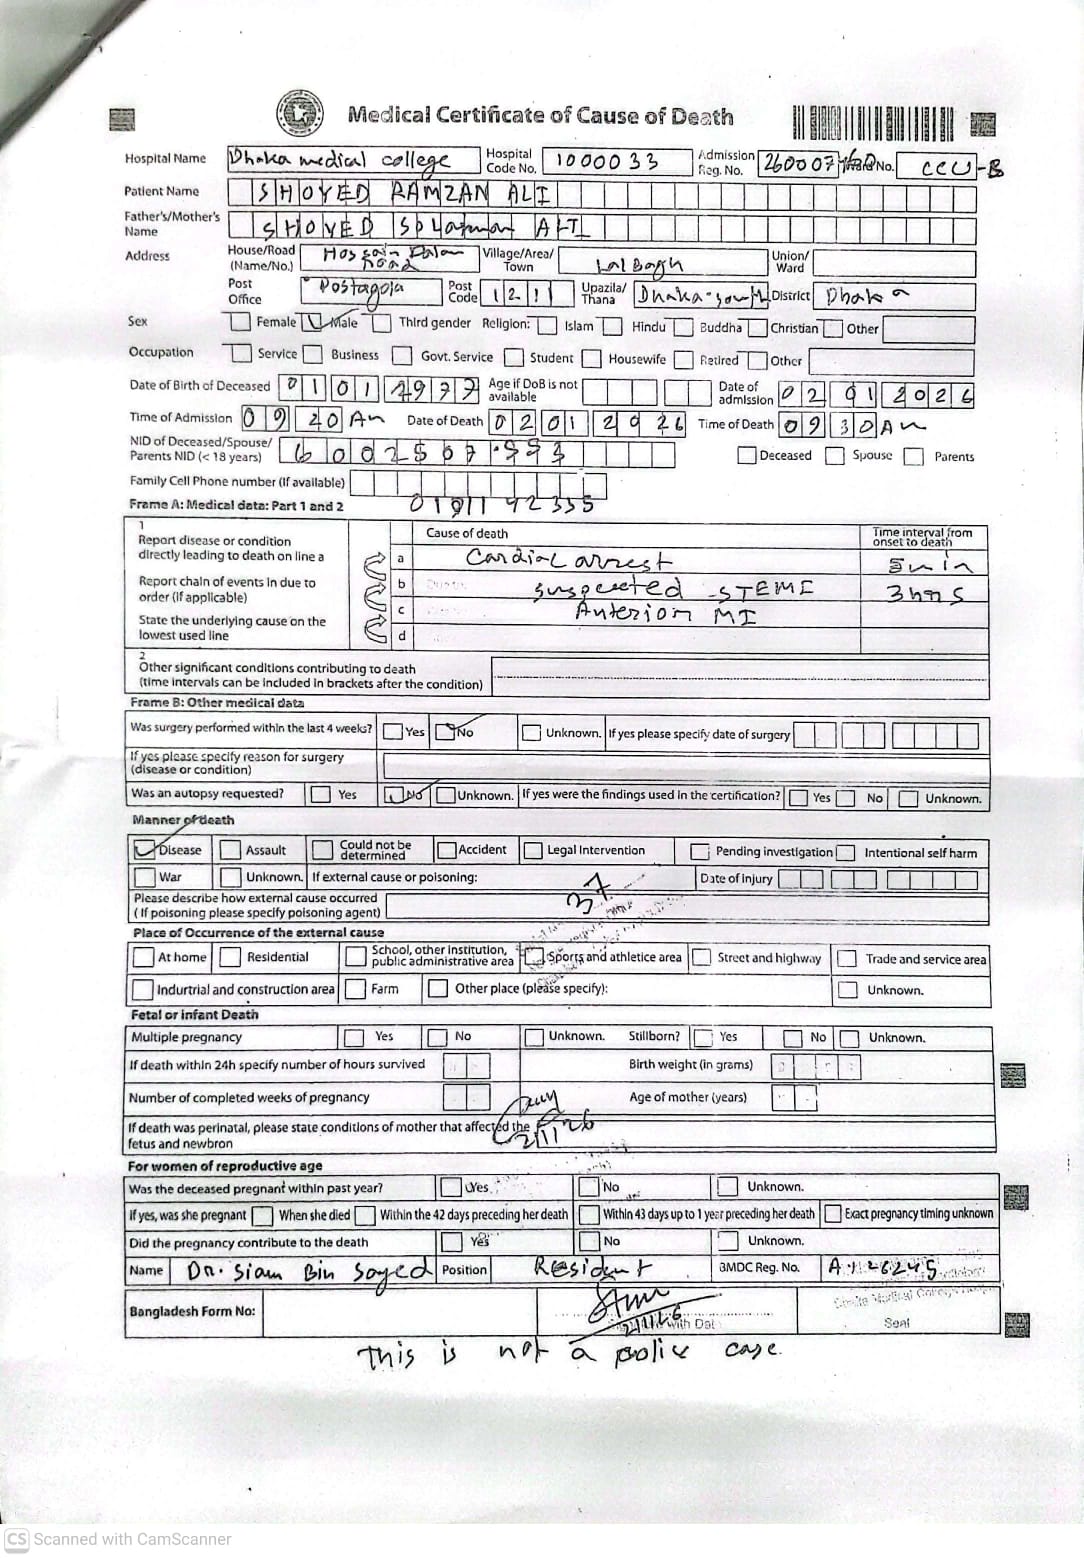 Medical Certificate of Cause of Death
Hospital Name Dhaka medical college Hospital Code No. 1000033 Admission Reg. No. No. CCU-B
Patient Name SHOYED RAMZAN ALI
Father's/Mother's Name SHOYED ALI
Address House/Road (Name/No.) Hossain Dalan Road Village/Area/Town Lalbagh Union/Ward
Post Office Postagola Post Code 1211 Upazila/Thana Dhaka-south District Dhaka
Sex Female Male Third gender Religion: Islam Hindu Buddha Christian Other
Occupation Service Business Govt. Service Student Housewife Retired Other
Date of Birth of Deceased 01 01 1977 Age if DoB is not available Date of admission 02 01 2026
Time of Admission 09 20 Am Date of Death 02 01 2026 Time of Death 09 30 Am
NID of Deceased/Spouse/Parents NID (< 18 years) Deceased Spouse Parents
Family Cell Phone number (If available)
Frame A: Medical data: Part 1 and 2
1
Report disease or condition directly leading to death on line a
Report chain of events in due to order (if applicable)
State the underlying cause on the lowest used line
Cause of death Time interval from onset to death
a Cardiac arrest 5min
b suspected STEMI 3hrs
c Anterior MI
d
2
Other significant conditions contributing to death
(time intervals can be included in brackets after the condition)
Frame B: Other medical data
Was surgery performed within the last 4 weeks? Yes No Unknown. If yes please specify date of surgery
If yes please specify reason for surgery
(disease or condition)
Was an autopsy requested? Yes No Unknown. If yes were the findings used in the certification? Yes No Unknown.
Manner of death
Disease Assault Could not be determined Accident Legal Intervention Pending investigation Intentional self harm
War Unknown. If external cause or poisoning: Date of injury
37
Please describe how external cause occurred
( If poisoning please specify poisoning agent)
Place of Occurrence of the external cause
At home Residential School, other institution, public administrative area Sports and athletice area Street and highway Trade and service area
Indurtrial and construction area Farm Other place (please specify): Unknown.
Fetal or infant Death
Multiple pregnancy Yes No Unknown. Stillborn? Yes No Unknown.
If death within 24h specify number of hours survived Birth weight (in grams)
Number of completed weeks of pregnancy Age of mother (years)
If death was perinatal, please state conditions of mother that affected the
fetus and newbron
2/1/26
For women of reproductive age
Was the deceased pregnant within past year? Yes No Unknown.
If yes, was she pregnant When she died Within the 42 days preceding her death Within 43 days up to 1 year preceding her death Exact pregnancy timing unknown
Did the pregnancy contribute to the death Yes No Unknown.
Name Dr. Siam Bin Sayed Position Resident BMDC Reg. No.
Bangladesh Form No: 2/1/26 with Dat Seal
This is not a police case.
CS Scanned with CamScanner